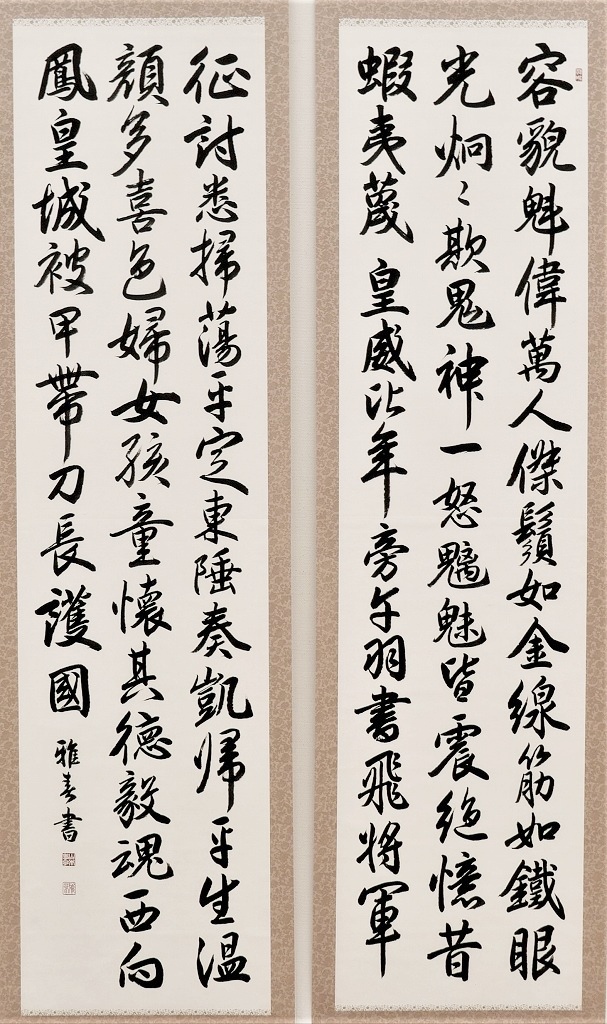 容貌魁偉萬人傑鬚如金線筋如鐵眼
光炯〻欺鬼神一怒魑魅皆震絶憶昔
蝦夷蔑 皇威比年旁午羽書飛将軍
征討悉掃蕩平定東陲奏凱帰平生温
顔多喜色婦女孩童懐其徳毅魂西向
鳳皇城被甲帶刀長護國
雅春書